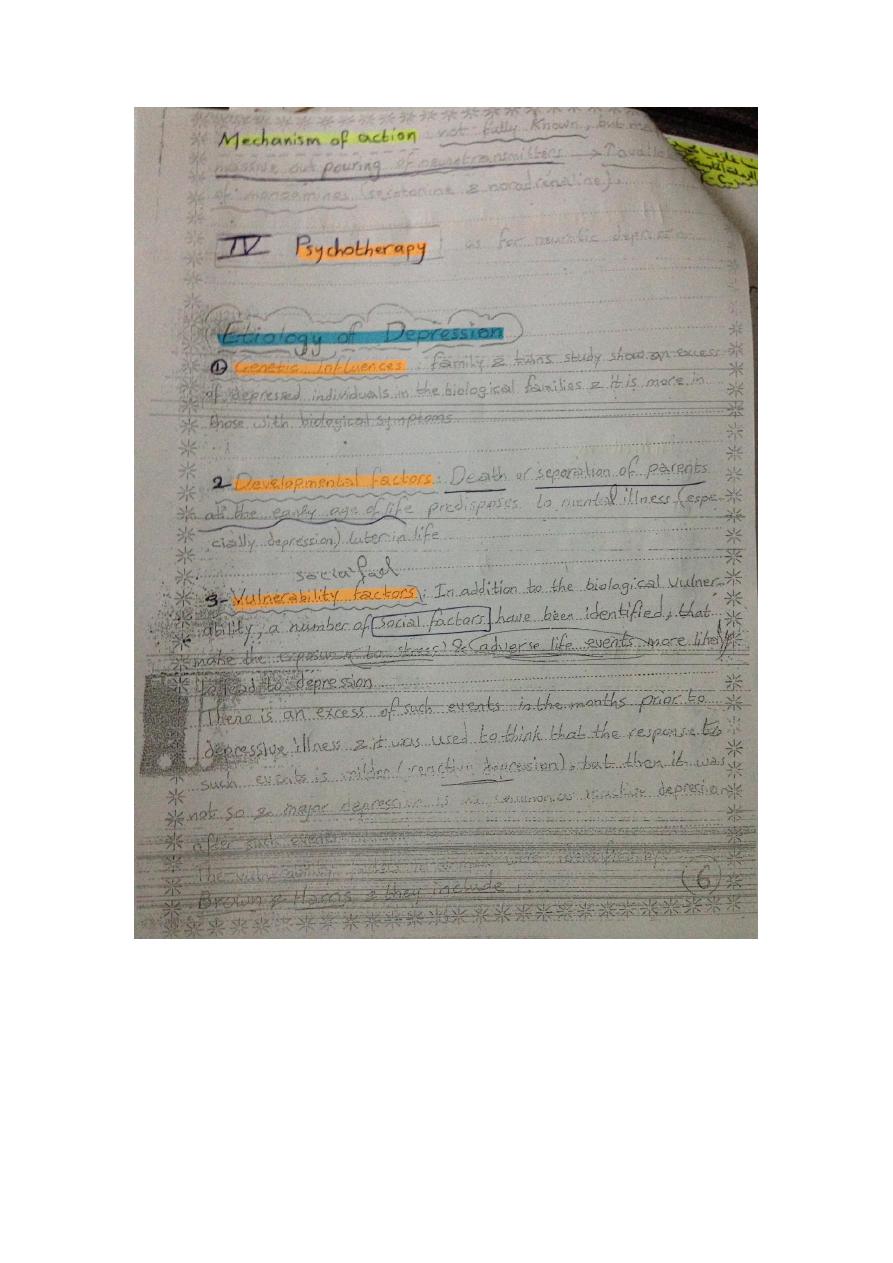 Mechanism of action not fully Known, but
massive out pouring of neurotransmitters →
of monoamines (serotonine & noradrenaline).
IV Psychotherapy as for neurotic depression
Etiology of Depression
① Genetic influences: family & twins study show an excess
of depressed individuals in the biological families & it is more in
those with biological symptoms
2 Developmental factors: Death or separation of parents
at the early age of life predisposes to mental illness (espe-
cially depression) later in life
social
3- Vulnerability factors: In addition to the biological vulner-
ability, a number of social factors have been identified, that
make the exposure to stress & adverse life events more likely
to lead to depression
There is an excess of such events in the months prior to
depressive illness & it was used to think that the response to
such events is milder (reactive depression), but then it was
not so & major depression is as common as reactive depression
after such events
The vulnerability factors identified by
Brown & Harris & they include :..
6